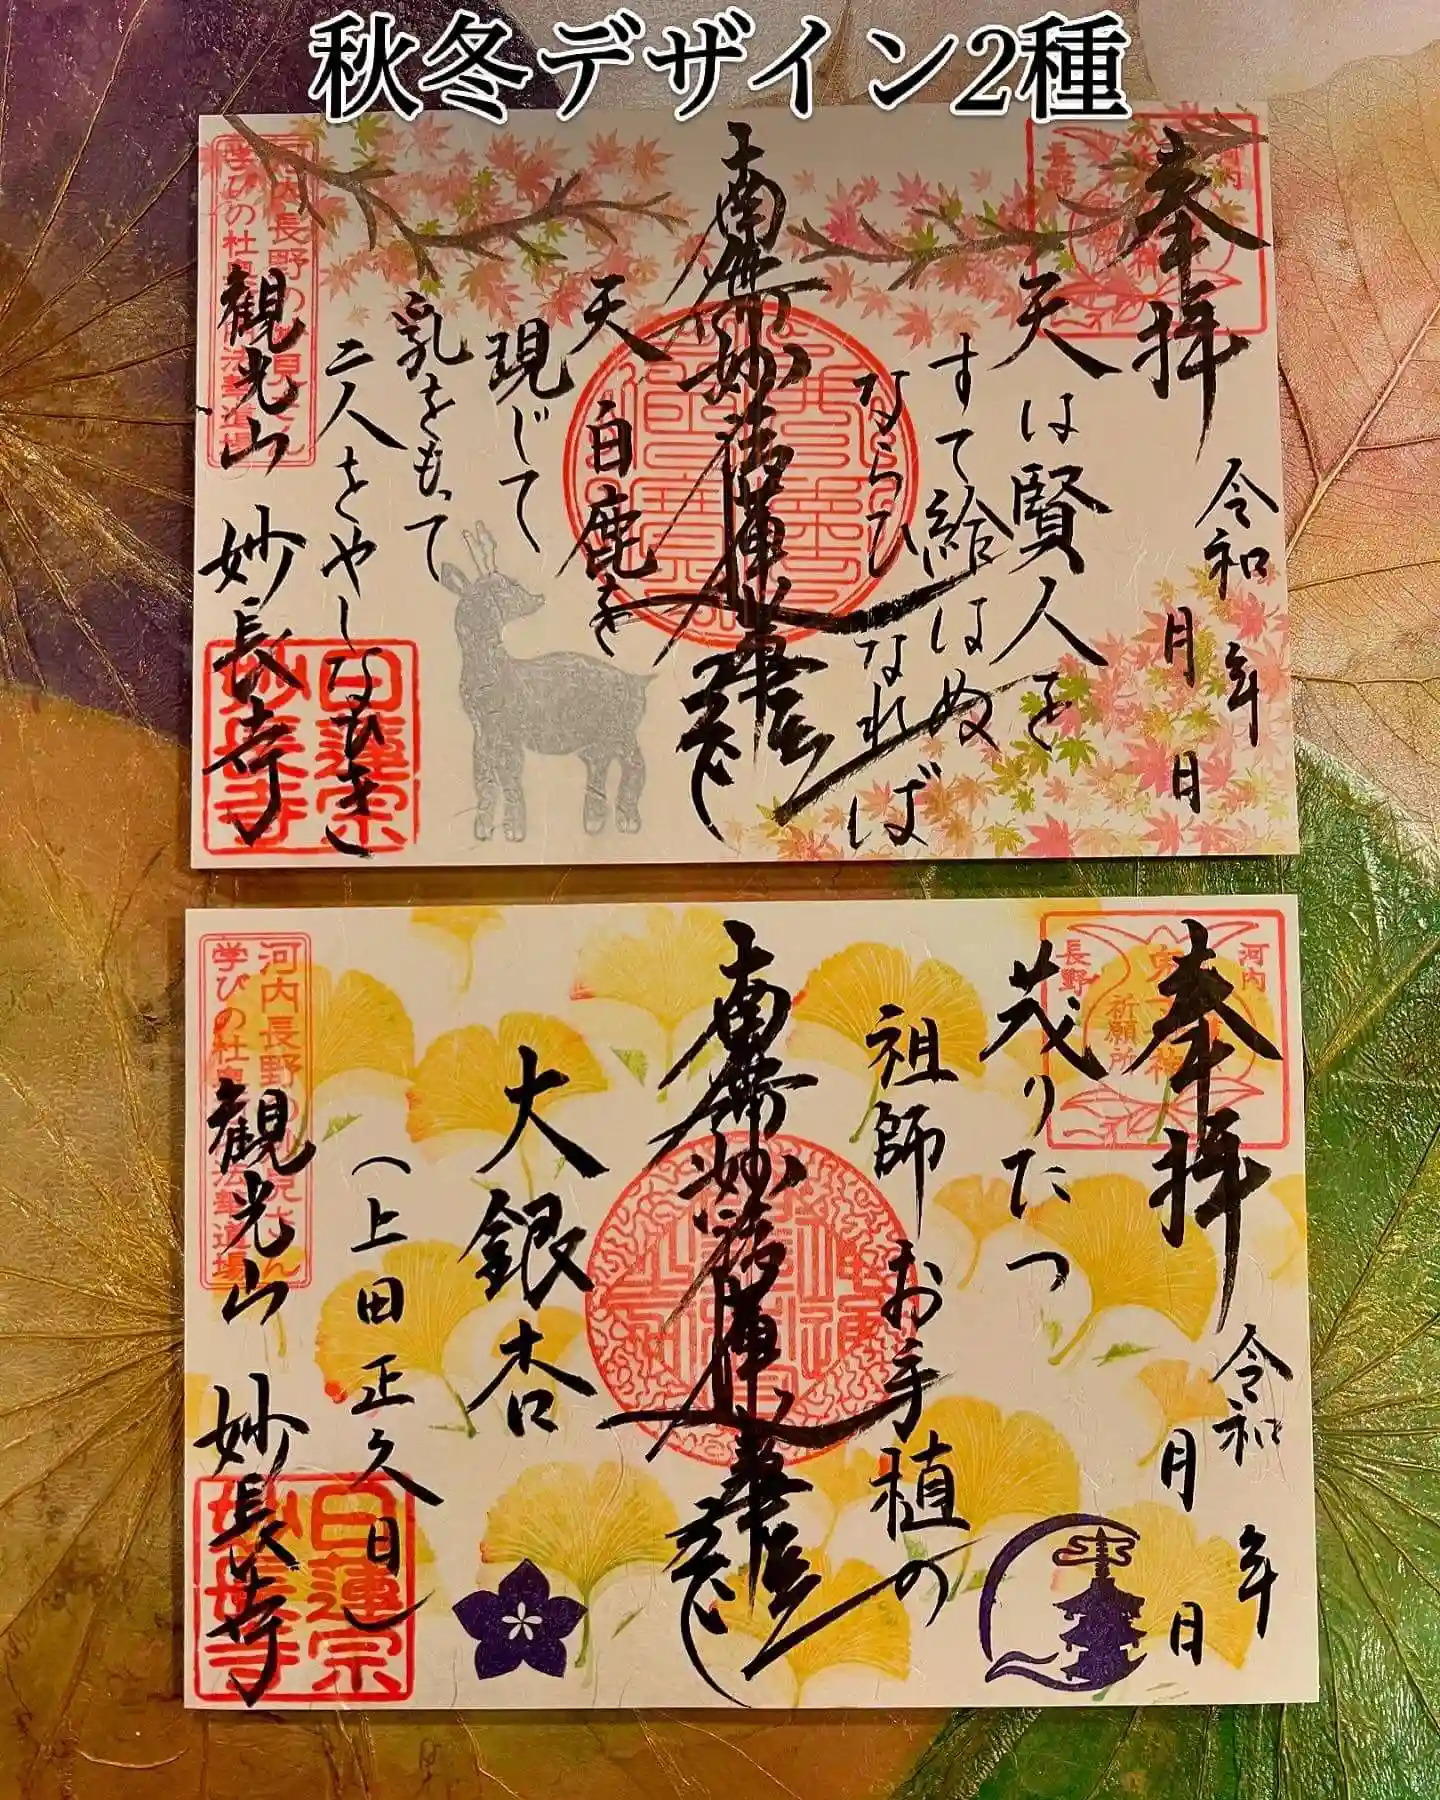 秋冬デザイン2種
奉拝
令和 年
月 日
天は賢人を
すて給はぬ
ならひ なれ
ば
南無妙法蓮華経
天 白鹿を
現じて
乳をもって
二人をやしなひき
観光山 妙長寺
河内長野の
学びの杜
日蓮宗
妙長寺
奉拝
令和 年
月 日
河内
長野
祈願所
茂りたつ
祖師お手植の
南無妙法蓮華経
大銀杏
(上田正久日)
観光山 妙長寺
河内長野の
学びの杜
日蓮宗
妙長寺